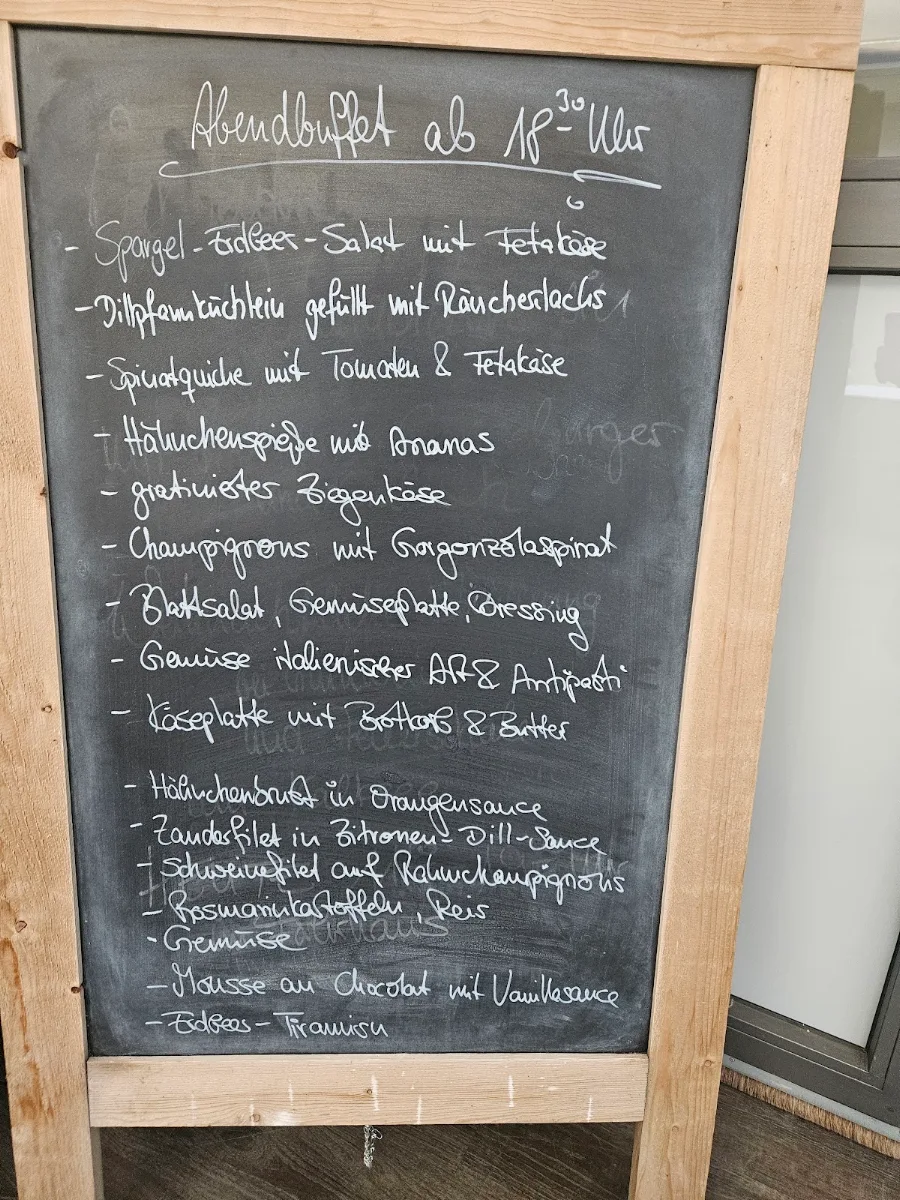 Abendbuffet ab 18³⁰ Uhr
- Spargel-Erdbeer-Salat mit Fetakäse
- Dillpfannküchlein gefüllt mit Räucherlachs
- Spinatquiche mit Tomaten & Fetakäse
- Hähnchenspieße mit Ananas
- gratinierter Ziegenkäse
- Champignons mit Gorgonzolaspinat
- Blattsalat, Gemüseplatte, Dressing
- Gemüse italienischer Art & Antipasti
- Käseplatte mit Brotkorb & Butter
- Hähnchenbrust in Orangensauce
- Zanderfilet in Zitronen-Dill-Sauce
- Schweinefilet auf Rahmchampignons
- Rosmarinkartoffeln, Reis
- Gemüse
- Mousse au Chocolat mit Vanillesauce
- Erdbeer-Tiramisu